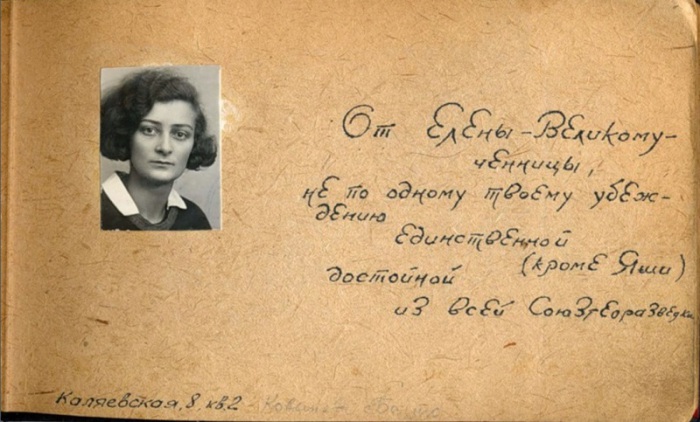 От Елены-Великому-
ченницы,
не по одному твоему убеж-
дению
единственной
(кроме Яши)
достойной
из всей Союзгеоразведки
Каляевская, 8, кв. 2